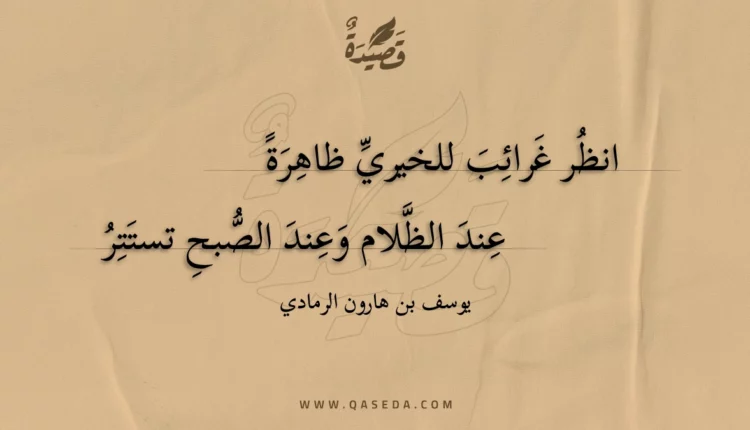 قَصِيدَةٌ
انظُر غَرائِبَ للخيريِّ ظاهِرَةً
عِندَ الظَّلام وَعِندَ الصُّبحِ تستَتِرُ
يوسف بن هارون الرمادي
WWW.QASEDA.COM